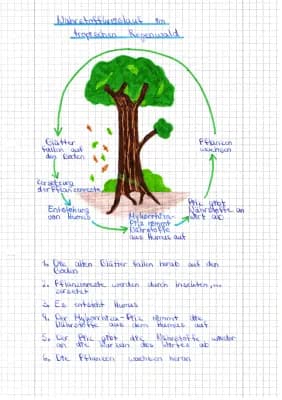 Nährstoffkreislauf im
tropischen Regenwald
Blätter
fallen auf
den Boden
Pflanzen
wachsen
Zersetzung
der Pflanzenreste
Entstehung
von Humus
Mykorrhiza-
Pilz nimmt
Nährstoffe
aus Humus auf
Pilz gibt
Nährstoffe an
Wirt ab
1. Die alten Blätter fallen herab auf den
Boden
2. Pflanzenreste werden durch Insekten,...
zersetzt
3. Es entsteht Humus
4. Der Mykorrhiza-Pilz nimmt die
Nährstoffe aus dem Humus auf
5. Der Pilz gibt die Nährstoffe wieder
an die Wurzeln des Wirtes ab
6. Die Pflanzen wachsen heran